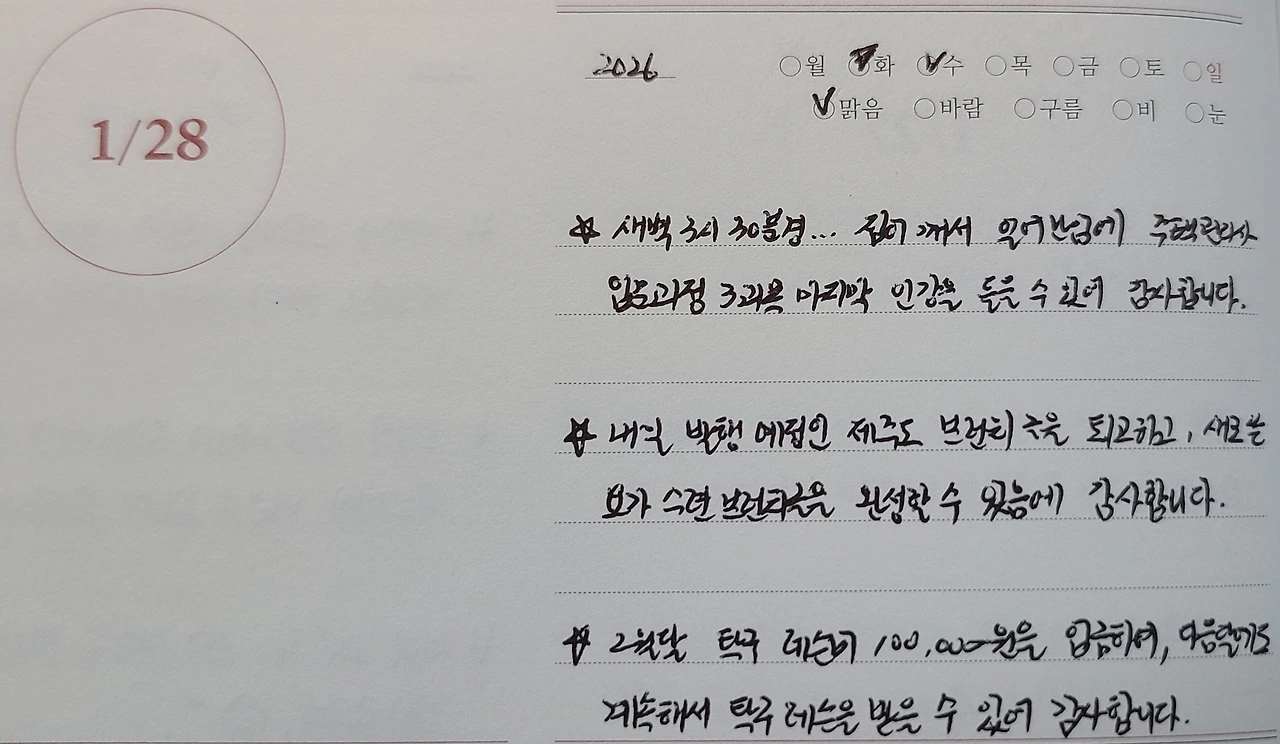 1/28
2026 월 화 수 목 금 토 일
맑음 바람 구름 비 눈
새벽 3시 30분경... 잠이 깨서 일어났음에 주택관리사
입문과정 3과목 마지막 인강을 들을 수 있어 감사합니다.
내일 발행 예정인 제주도 브런치 글을 퇴고하고, 새로운
요가 수련 브런치글을 완성할 수 있음에 감사합니다.
2월달 탁구 레슨비 100,000원을 입금하여, 다음달에도
계속해서 탁구 레슨을 받을 수 있어 감사합니다.